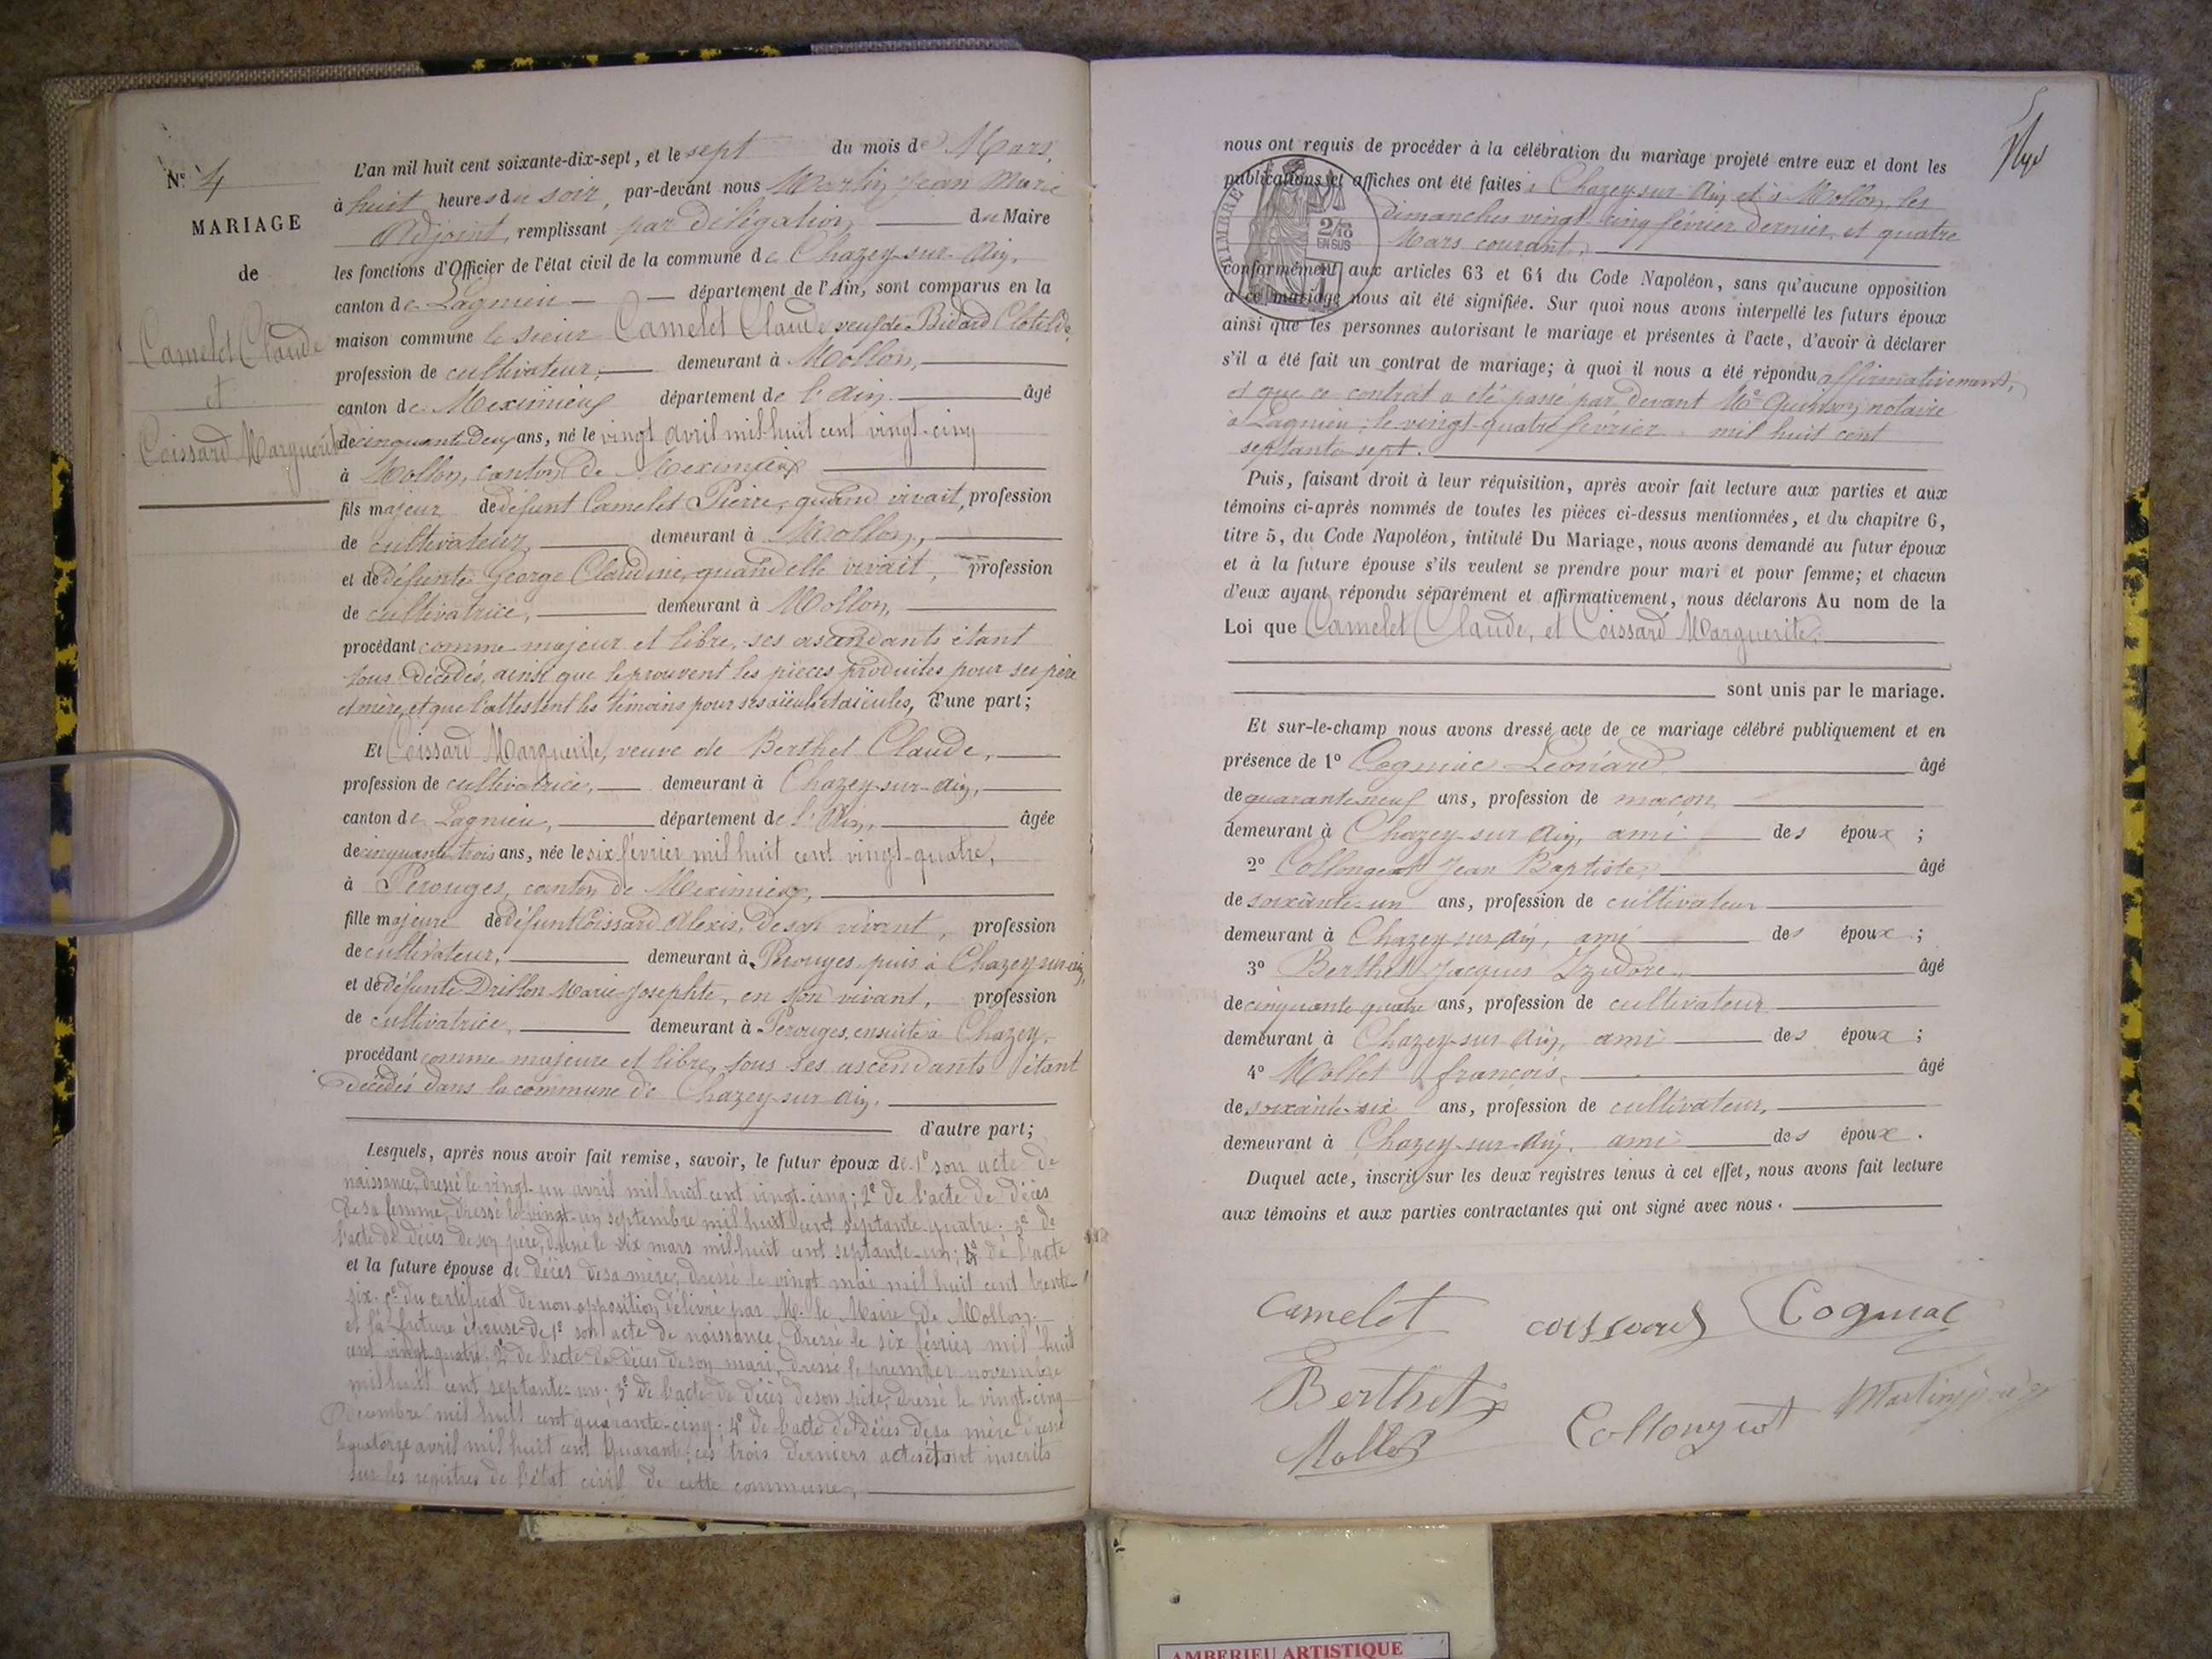 N.° 4
MARIAGE
de
Camelet Claude
et
Coissard Marguerite
L'an mil huit cent soixante-dix-sept, et le sept du mois de Mars,
à huit heures du soir, par-devant nous Martin Jean Marie
Adjoint, remplissant par délégation du Maire
les fonctions d'Officier de l'état civil de la commune de Chazey-sur-Ain,
canton de Lagnieu département de l'Ain, sont comparus en la
maison commune le sieur Camelet Claude veuf de Bidard Clotilde,
profession de cultivateur, demeurant à Mollon,
canton de Meximieux département de l'Ain âgé
de cinquante deux ans, né le vingt avril mil huit cent vingt-cinq
à Mollon, canton de Meximieux
fils majeur de défunt Camelet Pierre, quand vivait, profession
de cultivateur, demeurant à Mollon,
et de défunte George Claudine, quand elle vivait, profession
de cultivatrice, demeurant à Mollon,
procédant comme majeur et libre, ses ascendants étant
tous décédés, ainsi que le prouvent les pièces produites pour ses père
et mère, et que l'attestent les témoins pour ses aïeuls et aïeules, d'une part;
Et Coissard Marguerite, veuve de Berthet Claude,
profession de cultivatrice, demeurant à Chazey-sur-Ain,
canton de Lagnieu, département de l'Ain, âgée
de cinquante-trois ans, née le six février mil huit cent vingt-quatre,
à Perouges, canton de Meximieux,
fille majeure de défunt Coissard Alexis, de son vivant, profession
de cultivateur, demeurant à Perouges, puis à Chazey-sur-Ain,
et de défunte Drillon Marie-Josephte, en son vivant, profession
de cultivatrice, demeurant à Perouges, ensuite à Chazey,
procédant comme majeure et libre, tous ses ascendants étant
décédés dans la commune de Chazey-sur-Ain.
d'autre part;
Lesquels, après nous avoir fait remise, savoir, le futur époux de 1° son acte de
naissance, dressé le vingt-un avril mil huit cent vingt-cinq; 2° de l'acte de décès
de sa femme, dressé le vingt-un septembre mil huit cent septante-quatre; 3° de
l'acte de décès de son père, dressé le six mars mil huit cent septante-un; 4° de l'acte
et la future épouse de décès de sa mère, dressé le vingt mai mil huit cent trente-
six. 5° du certificat de non opposition délivré par M. le Maire de Mollon.
et la future épouse de 1° son acte de naissance, dressé le six février mil huit
cent vingt-quatre. 2° de l'acte de décès de son mari, dressé le premier novembre
mil huit cent septante-un; 3° de l'acte de décès de son père, dressé le vingt-cinq
décembre mil huit cent quarante-cinq; 4° de l'acte de décès de sa mère dressé
le quatorze avril mil huit cent quarant; ces trois derniers actes étant inscrits
sur les registres de l'état civil de cette commune,
nous ont requis de procéder à la célébration du mariage projeté entre eux et dont les
publications et affiches ont été faites à Chazey-sur-Ain et à Mollon, les
dimanches vingt-cinq février dernier, et quatre
Mars courant,
TIMBRE
2/10
EN SUS
conformément aux articles 63 et 64 du Code Napoléon, sans qu'aucune opposition
à ce mariage nous ait été signifiée. Sur quoi nous avons interpellé les futurs époux
ainsi que les personnes autorisant le mariage et présentes à l'acte, d'avoir à déclarer
s'il a été fait un contrat de mariage; à quoi il nous a été répondu affirmativement,
et que ce contrat a été passé par devant Me Quinson, notaire
à Lagnieu, le vingt-quatre février mil huit cent
septante-sept.
Puis, faisant droit à leur réquisition, après avoir fait lecture aux parties et aux
témoins ci-après nommés de toutes les pièces ci-dessus mentionnées, et du chapitre 6,
titre 5, du Code Napoléon, intitulé Du Mariage, nous avons demandé au futur époux
et à la future épouse s'ils veulent se prendre pour mari et pour femme; et chacun
d'eux ayant répondu séparément et affirmativement, nous déclarons Au nom de la
Loi que Camelet Claude, et Coissard Marguerite,
sont unis par le mariage.
Et sur-le-champ nous avons dressé acte de ce mariage célébré publiquement et en
présence de 1° Cogniac Léonard âgé
de quarante-neuf ans, profession de maçon,
demeurant à Chazey-sur-Ain, ami des époux ;
2° Collongeat Jean Baptiste, âgé
de soixante-un ans, profession de cultivateur
demeurant à Chazey-sur-Ain, ami des époux ;
3° Berthet Jacques Izidore, âgé
de cinquante-quatre ans, profession de cultivateur
demeurant à Chazey-sur-Ain, ami des époux ;
4° Mollet françois, âgé
de soixante-six ans, profession de cultivateur,
demeurant à Chazey-sur-Ain, ami des époux.
Duquel acte, inscrit sur les deux registres tenus à cet effet, nous avons fait lecture
aux témoins et aux parties contractantes qui ont signé avec nous.
Camelet coissard Cogniac
Berthet Collongeat Martin
Mollet
AMBERIEU ARTISTIQUE